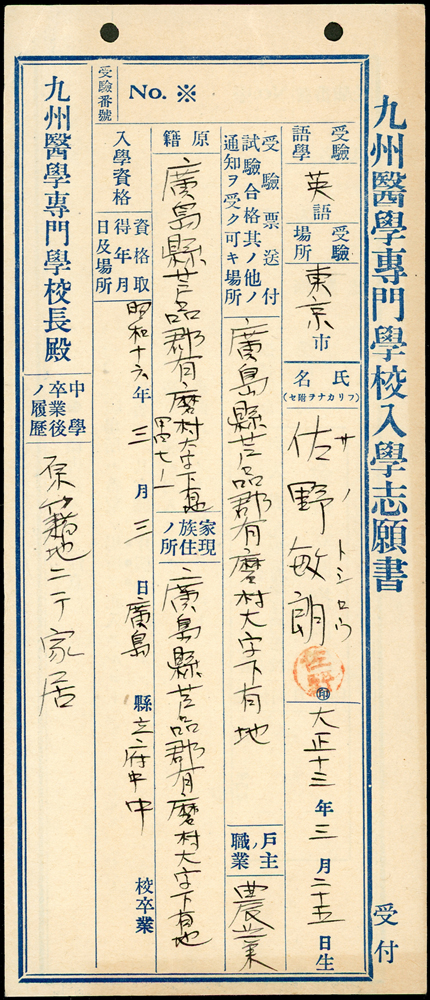 九州醫學專門學校入學志願書
受付
受驗語學
英語
受驗場所
東京市
氏名
(フリカナヲ附セ)
サノ トシロウ
佐野敏朗
佐野
印
大正十三年三月二十五日生
受驗票送付
試驗合格其ノ他ノ
通知ヲ受ク可キ場所
廣島縣芦品郡有磨村大字下有地
戶主ノ職業
農業
原籍
廣島縣芦品郡有磨村大字下有地
家族ノ現住所
廣島縣芦品郡有磨村大字下有地
受驗番號
No. ※
入學資格
資格取得年月日及場所
昭和十六年三月三日
廣島縣立府中中校卒業
九州醫學專門學校長殿
中學卒業後ノ履歷
原籍地ニテ家居